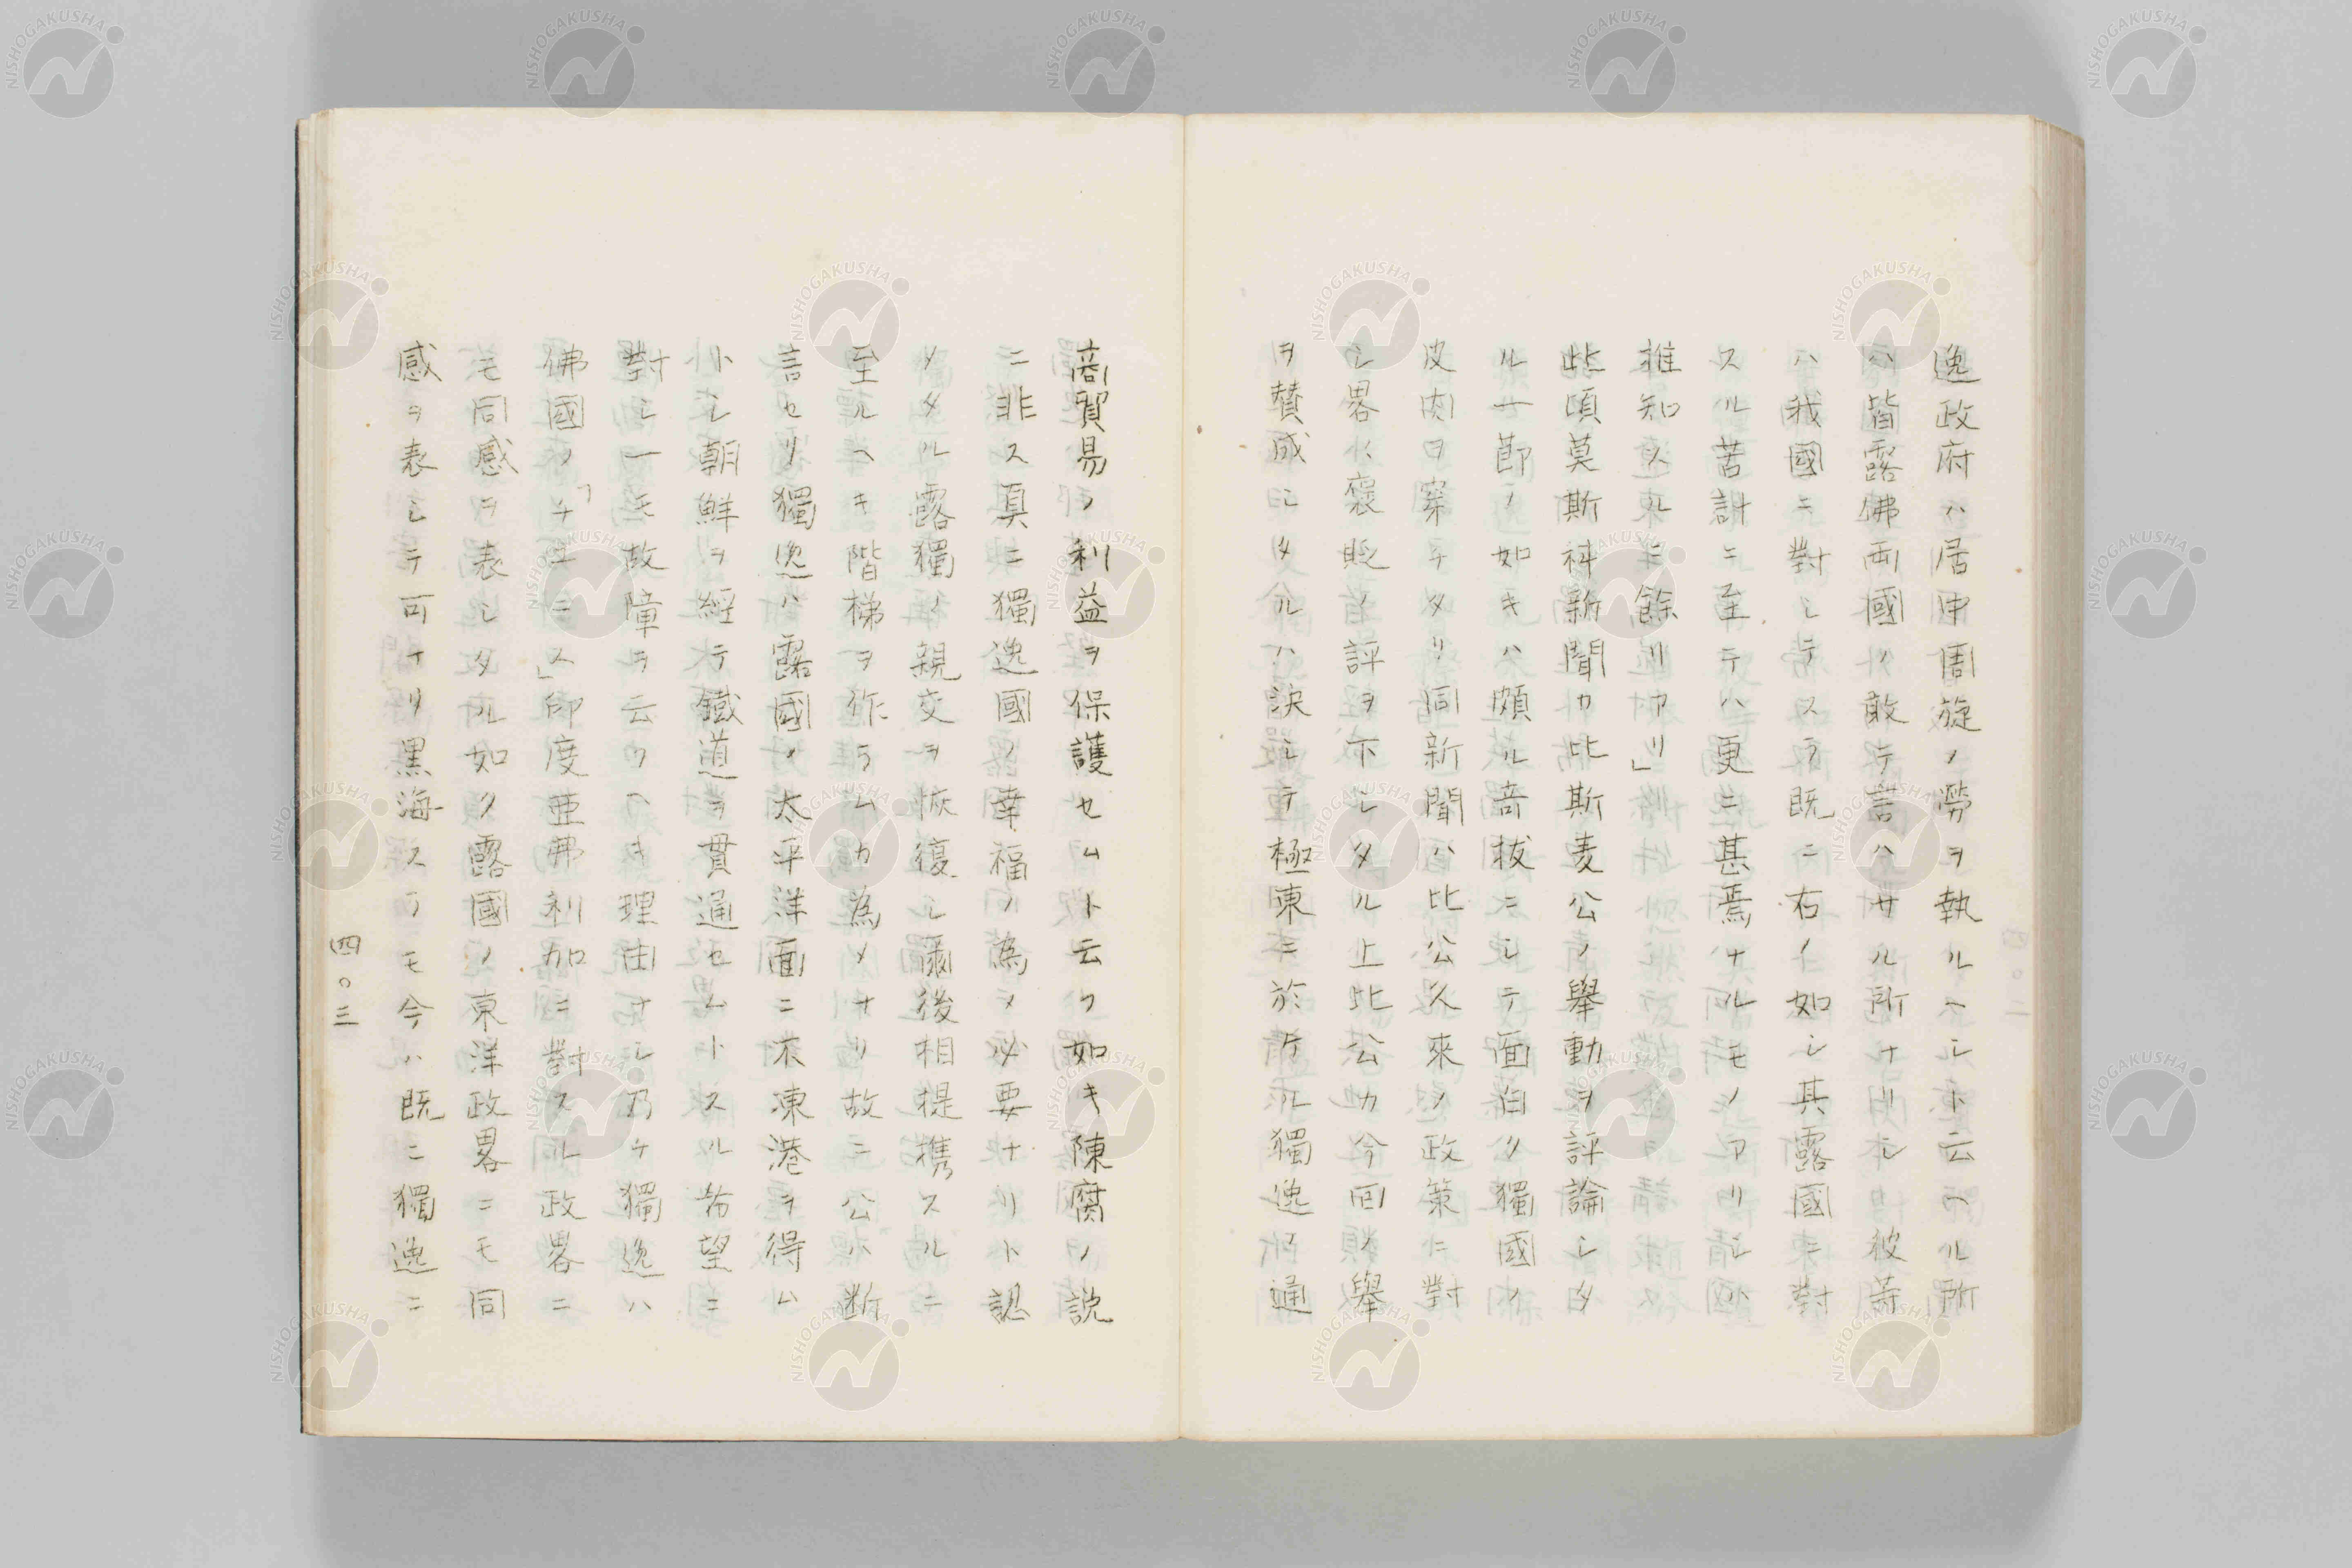 逸政府ハ居中周旋ノ勞ヲ執ルヘシト云ヘル所
ハ皆露佛両國ノ敢テ言ハサル所ナリシ彼等
ハ我國ニ對シテスラ既ニ右ノ如シ其露國ニ對
スル苦計ニ至テハ更ニ甚焉ナルモノアリシハ
推知スルニ餘リアリ」
此頃莫斯科新聞カ比斯麦公ノ舉動ヲ評論シタ
ル一節ノ如キハ頗ル奇拔ニシテ面白ク獨國ノ
皮肉ヲ穿チタリ同新聞ハ比公久來ノ政策ニ對
シ畧ホ褒貶ノ評ヲ下シタル上比公カ今回ノ舉
ヲ賛成シタルハ決シテ極東ニ於ケル獨逸ノ通
商貿易ノ利益ヲ保護セムト云フ如キ陳腐ノ説
ニ非ス真ニ獨逸國ノ幸福ノ為メ必要ナリト認
メタル露獨ノ親交ヲ恢復シ爾後相提携スルニ
至ルヘキ階梯ヲ作ラムカ為メナリ故ニ公ハ断
言セリ獨逸ハ露國ノ太平洋面ニ不凍港ヲ得ム
トシ朝鮮ヲ經テ鐵道ヲ貫通セムトスル希望ニ
對シ一モ故障ヲ云フヘキ理由ナシ乃チ獨逸ハ
佛國ノ「チュニス」印度亜弗利加ニ對スル政畧ニ
モ同感ヲ表シタル如ク露國ノ東洋政畧ニモ同
感ヲ表シテ可ナリ黒海スラモ今ハ既ニ獨逸ニ
四〇三
NISHOGAKUSHA